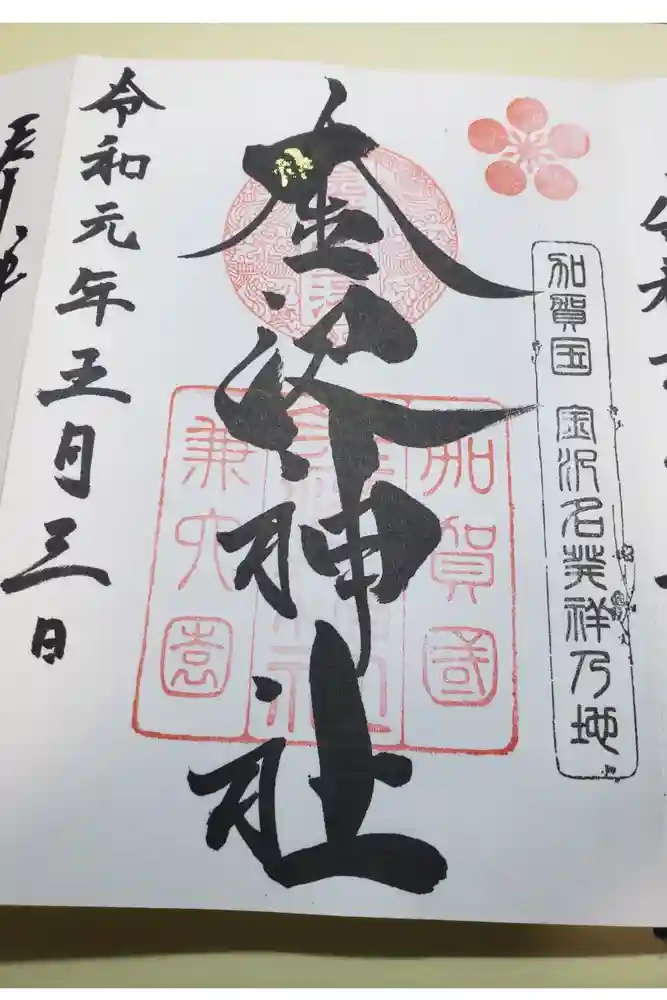 加賀国 金沢名発祥乃地
金澤神社
加賀國
金澤神社
兼六園
令和元年五月三日